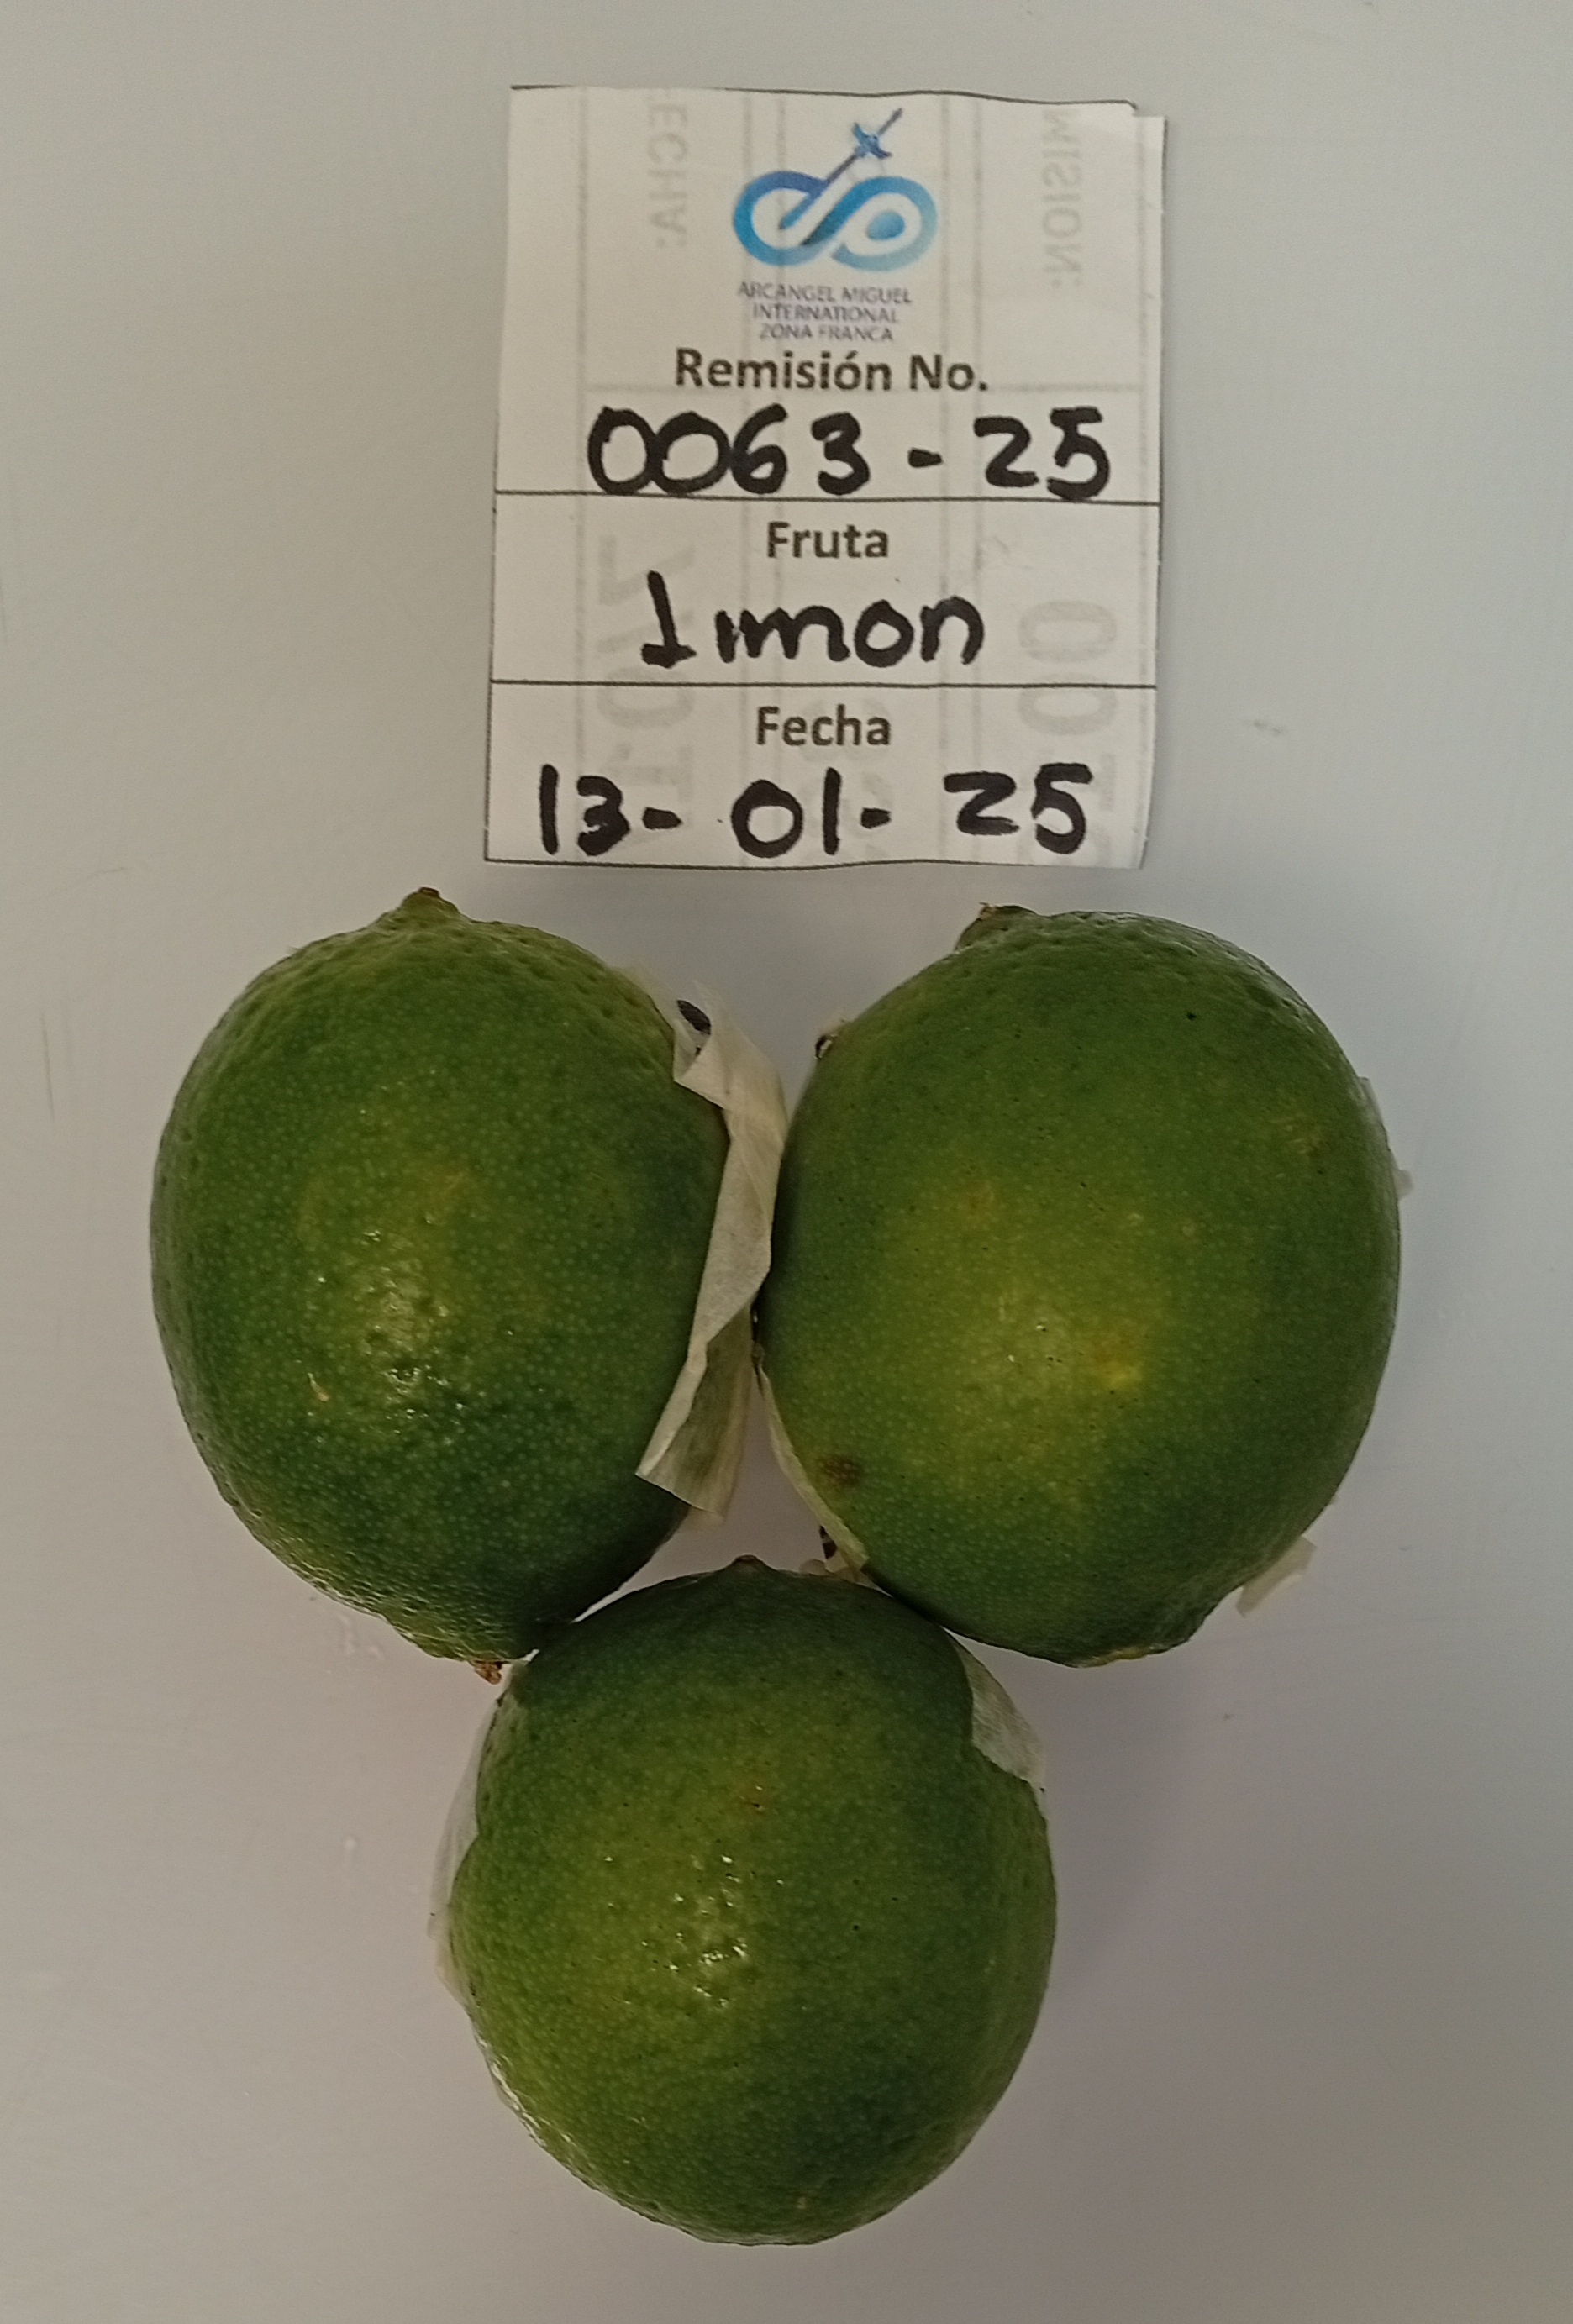 ARCANGEL MIGUEL
INTERNATIONAL
ZONA FRANCA
Remisión No.
0063-25
Fruta
Limon
Fecha
13-01-25